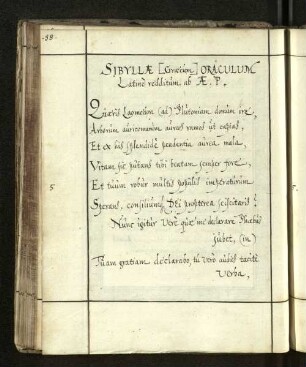 -88-
SIBYLLÆ [Græcum] ORACULUM
Latinè redditum, ab Æ. P.
Quæris Laomedon (ad) Plutoniam domum ire,
Arborum auricomarum aureos ramos ut capias,
Et ex his splendidè pendentia aurea mala,
Vitam sic putans tibi beatam semper fore,
5
Et tuum robur multis populis imperaturum
Sperans, consilium Dei propterea sciscitaris?
Nunc igitur Verè quæ me declarare Phœbus
jubet, (in)
Tuam gratiam declarabo, tu verò audias tacitè
Verba,